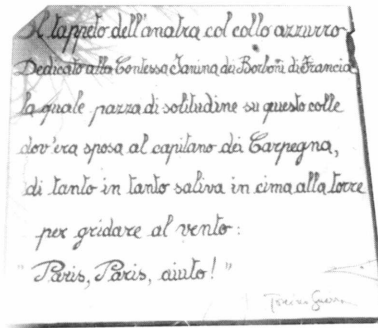 Il tappeto dell'anatra col collo azzurro
Dedicato alla Contessa Janina dei Borboni di Francia
la quale pazza di solitudine su questo colle
dov'era sposa al capitano dei Carpegna,
di tanto in tanto saliva in cima alla torre
per gridare al vento:
"Paris, Paris, aiuto!"
Tonino Guerra